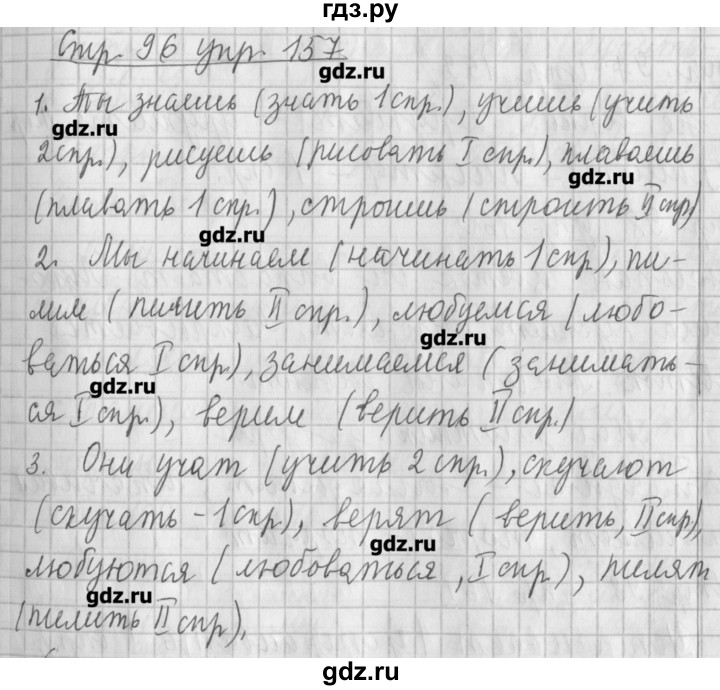 гдз.ру
Стр. 96 упр. 157
gdz.ru
1. Ты знаешь (знать 1 спр.), учишь (учить
gdz.ru
2 спр.), рисуешь (рисовать I спр.), плаваешь
gdz.ru
(плавать 1 спр.), строишь (строить II спр)
gdz.ru
2. Мы начинаем (начинать 1 спр.), пи-
лим (пилить II спр.), любуемся (любо-
gdz.ru
ваться I спр.), занимаемся (занимать-
gdz.ru
ся I спр.), верим (верить II спр.)
3. Они учат (учить 2 спр.), скучают
(скучать - 1 спр.), верят (верить, II спр),
gdz.ru
любуются (любоваться, I спр.), пилят
gdz.ru
(пилить II спр.).
gdz.ru